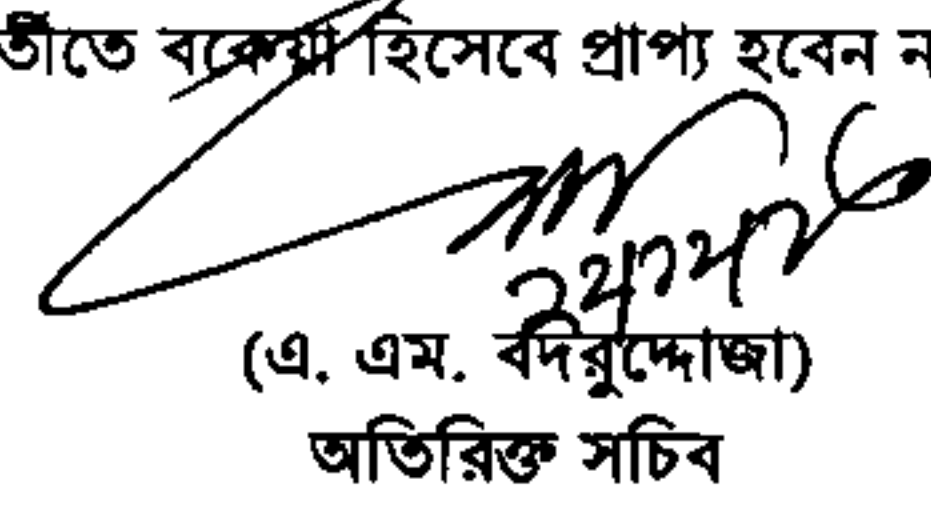 তীতে বকেয়া হিসেবে প্রাপ্য হবেন ন
(এ. এম. বদরুদ্দোজা)
অতিরিক্ত সচিব